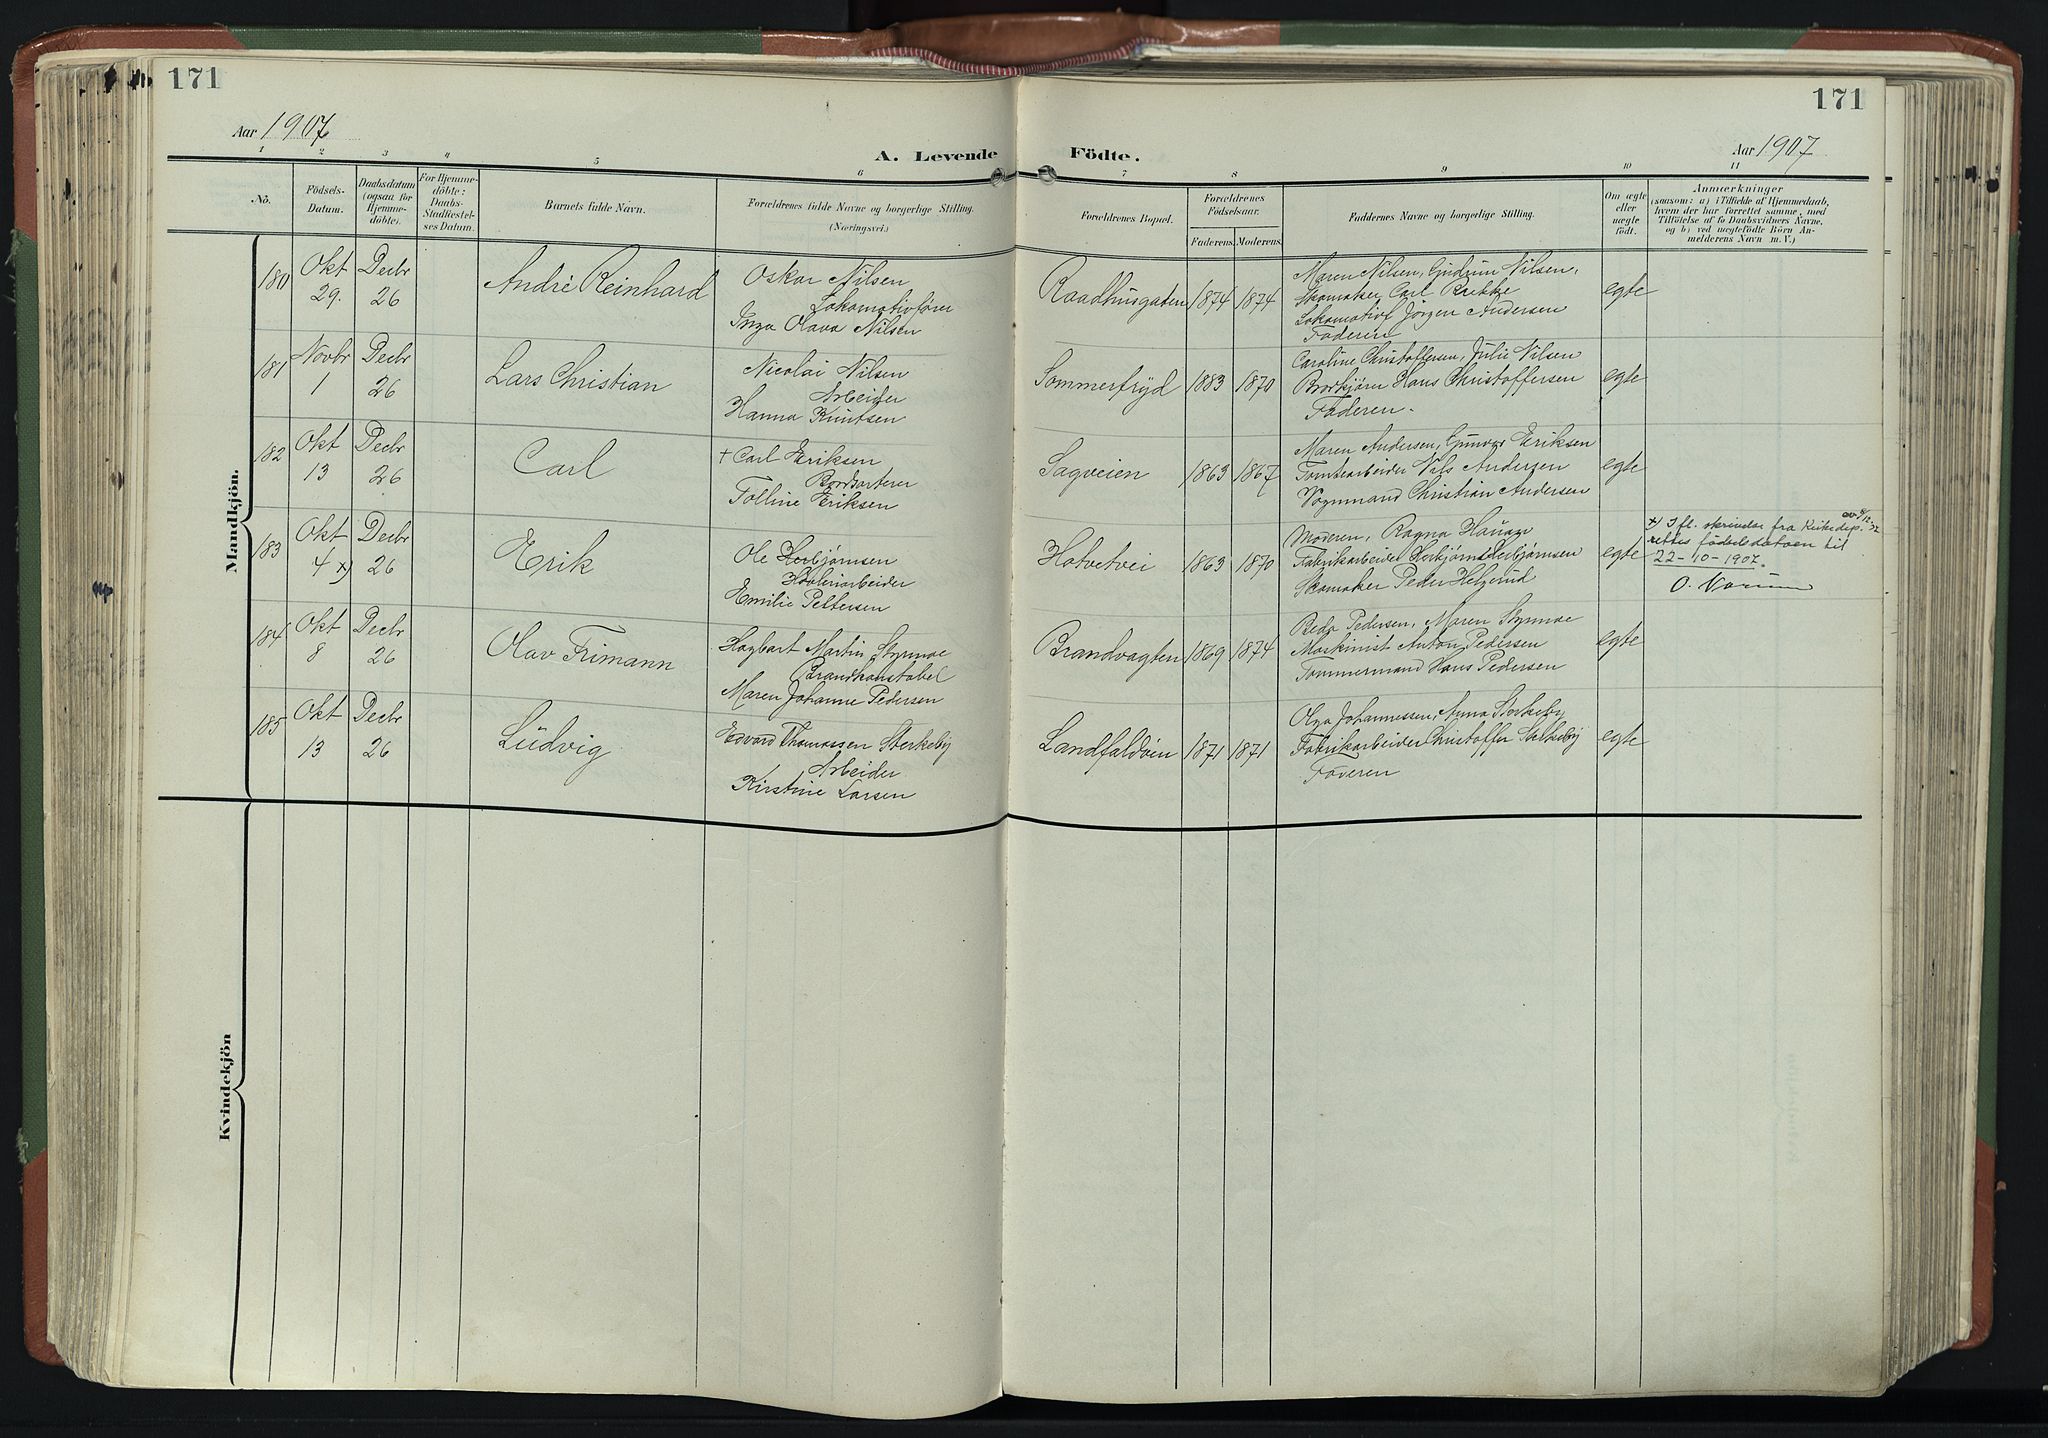 171
171
Aar 1907
A. Levende Födte.
Aar 1907
1 2 3 4 5 6 7 8 9 10 11
No.
Födsels-
Datum.
Daabsdatum
(ogsaa for
Hjemme-
döbte).
For Hjemme-
döbte:
Daabs-
Stadfæstel-
ses Datum.
Barnets fulde Navn.
Forældrenes fulde Navne og borgerlige Stilling.
(Næringsvei.)
Forældrenes Bopæl.
Forældrenes
Födselsaar.
Faderens. Moderens.
Faddernes Navne og borgerlige Stilling.
Om ægte
eller
uægte
födt.
Anmærkninger
(saasom: a) i Tilfælde af Hjemmedaab,
hvem der har forrettet samme, med
Tilföielse af to Daabsvidners Navne,
og b) ved uægtefödte Börn An-
melderens Navn m. V.)
Mandkjön.
180
Okt
29.
Decbr
26
André Reinhard
Oskar Nilsen
Lokomotivfører
Inga Olava Nilsen
Raadhusgaten
1874 1874
Maren Nilsen, Gudrun Nilsen,
Skomaker Carl
Lokomotivf Jörgen Andersen
Faderen
egte
181
Novbr
1
Decbr
26
Lars Christian
Nicolai Nilsen
Arbeider
Hanna Knutsen
Sommerfryd
1883 1870
Caroline Christoffersen, Julie Nilsen
Brødkjører Hans Christoffersen
Faderen.
egte
182
Okt
13
Decbr
26
Carl
+ Carl Eriksen
Bordsorterer
Tolline Eriksen
Sagveien
1863 1867
Maren Andersen, Gunvor Eriksen
Tomtearbeider Nils Andersen
Vognmand Christian Andersen
egte
183
Okt
4 x)
Decbr
26
Erik
Ole Herbjørnsen
Høvleriarbeider
Emilie Pettersen
Hotvetvei
1863 1870
Moderen, Ragna Hauge
Fabrikarbeider Herbjørn Herbjørnsen
Skomaker Peder Helgerud
egte
x) Ifl. skrivelse fra Kirkedep. av
rettes födselsdatoen til
22-10-1907.
184
Okt
8
Decbr
26
Olav Frimann
Hagbart Martin Stymoe
Brandkonstabel
Maren Johanne Pedersen
Brandvagten
1869 1874
Beda Pedersen, Maren Stymoe
Maskinist Anton Pedersen
Tømmermand Hans Pedersen
egte
185
Okt
13
Decbr
26
Ludvig
Edvard Thomassen Sterkeby
Arbeider
Kirstine Larsen
Landfaldöien
1871 1871
Olga Johannessen, Anna Sterkeby
Fabrikarbeider Christoffer Sterkeby
Faderen
egte
Kvindekjön